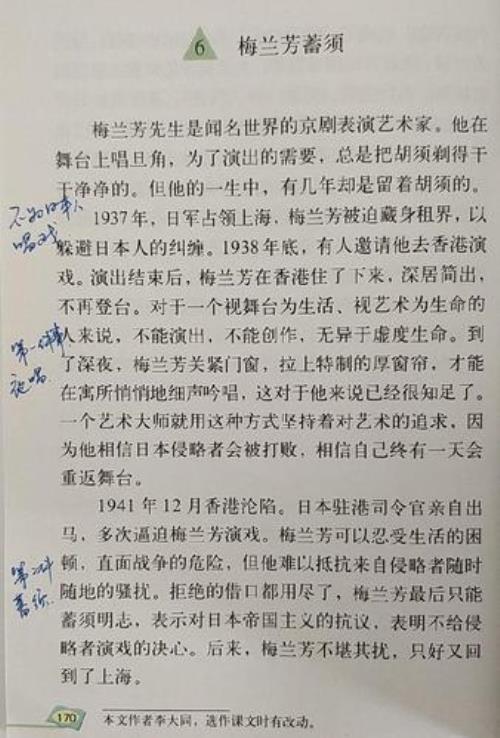 6 梅兰芳蓄须
梅兰芳先生是闻名世界的京剧表演艺术家。他在
舞台上唱旦角，为了演出的需要，总是把胡须剃得干
干净净的。但他的一生中，有几年却是留着胡须的。
1937年，日军占领上海，梅兰芳被迫藏身租界，以
躲避日本人的纠缠。1938年底，有人邀请他去香港演
戏。演出结束后，梅兰芳在香港住了下来，深居简出，
不再登台。对于一个视舞台为生活、视艺术为生命的
人来说，不能演出，不能创作，无异于虚度生命。到
了深夜，梅兰芳关紧门窗，拉上特制的厚窗帘，才能
在寓所悄悄地细声吟唱，这对于他来说已经很知足了。
一个艺术大师就用这种方式坚持着对艺术的追求，因
为他相信日本侵略者会被打败，相信自己终有一天会
重返舞台。
1941年12月香港沦陷。日本驻港司令官亲自出
马，多次逼迫梅兰芳演戏。梅兰芳可以忍受生活的困
顿，直面战争的危险，但他难以抵抗来自侵略者随时
随地的骚扰。拒绝的借口都用尽了，梅兰芳最后只能
蓄须明志，表示对日本帝国主义的抗议，表明不给侵
略者演戏的决心。后来，梅兰芳不堪其扰，只好又回
到了上海。
不为日本人
唱戏
第一件事
夜唱
第二件
蓄须
170
本文作者李大同，选作课文时有改动。